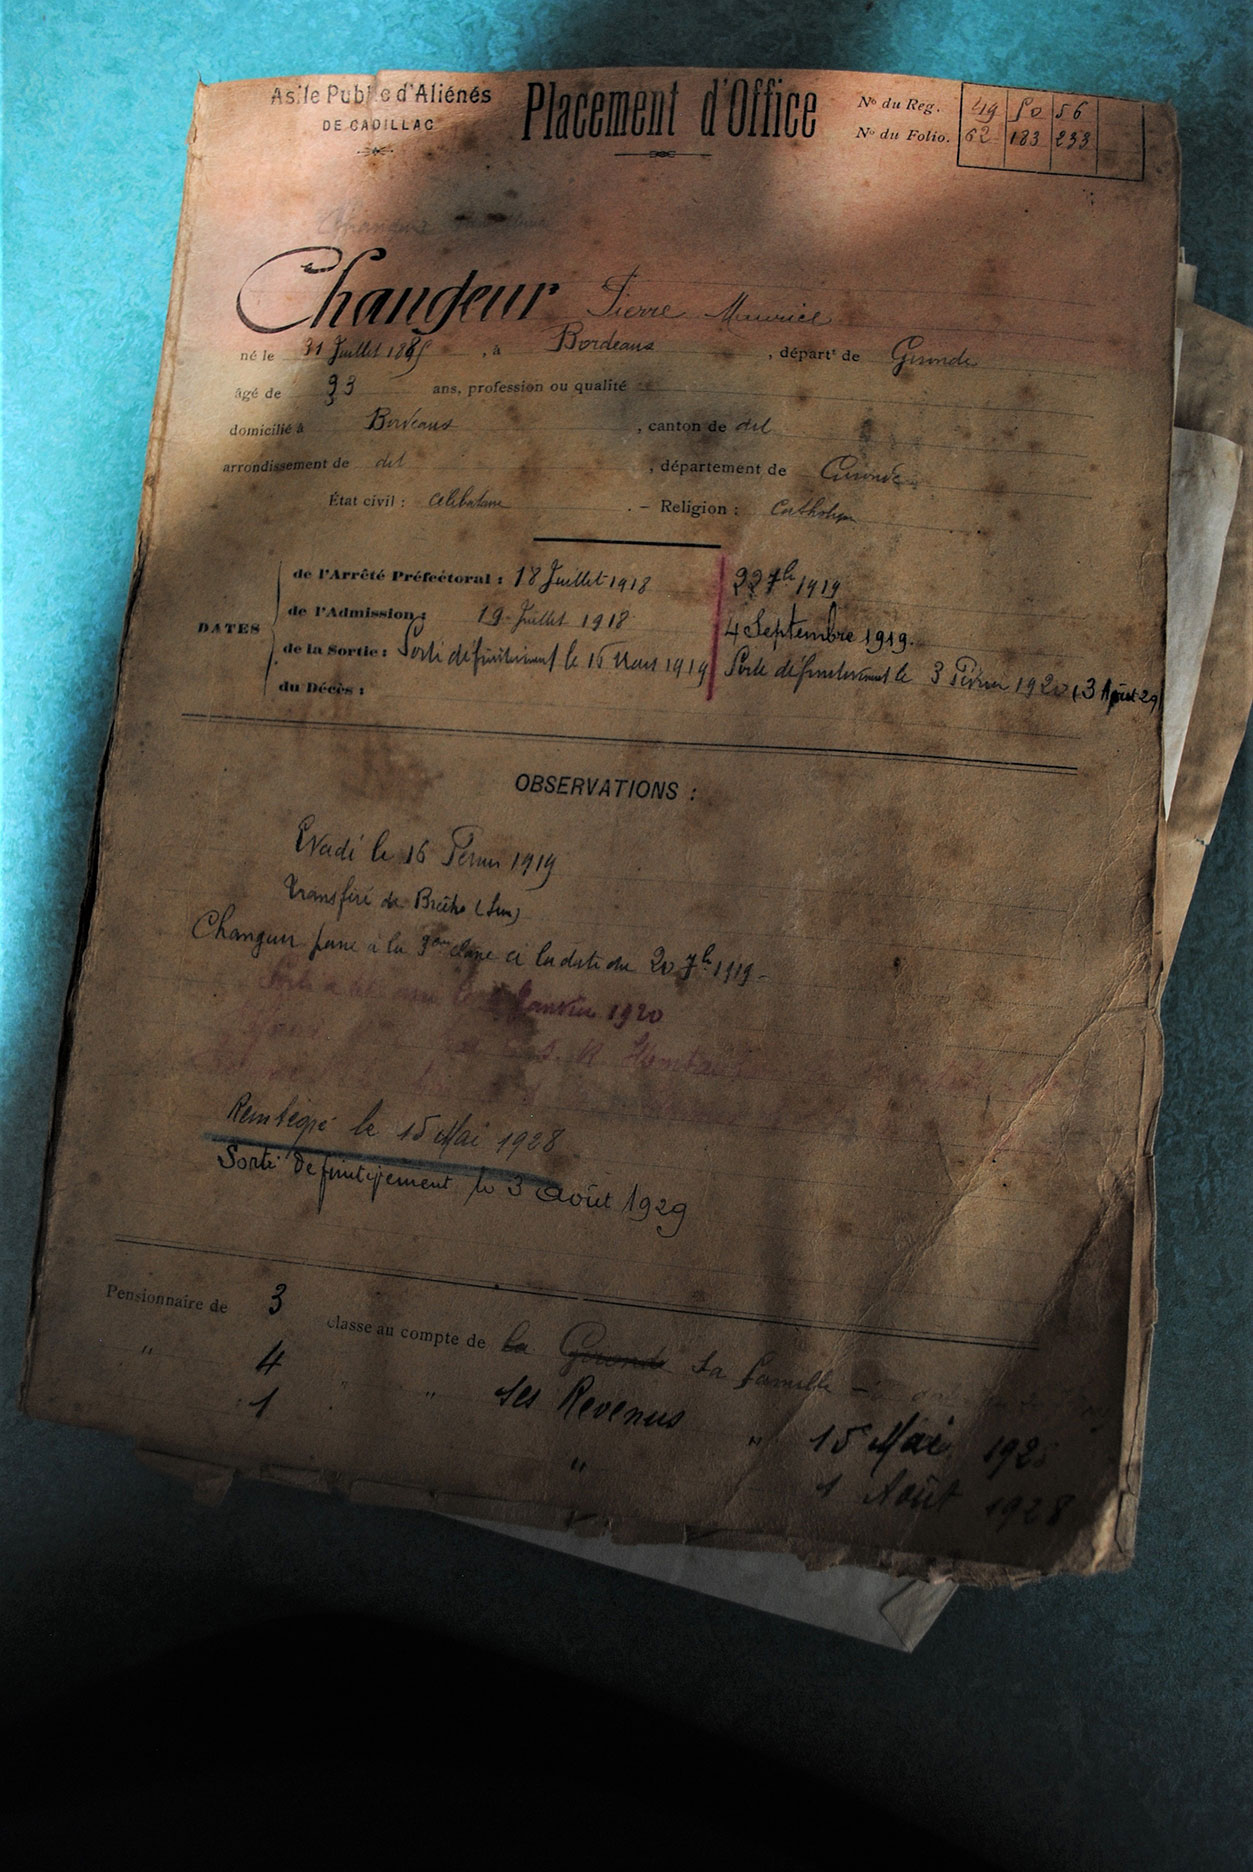 Asile Public d'Aliénés
DE CADILLAC
Placement d'Office
N° du Reg. 49 50 56
N° du Folio. 62 183 233
Changeur Pierre Maurice
né le 31 Juillet 1885, à Bordeaux, départ^t de Gironde
âgé de 33 ans, profession ou qualité
domicilié à Bordeaux, canton de dit
arrondissement de dit, département de Gironde
État civil : célibataire. – Religion : Catholique
DATES
de l'Arrêté Préfectoral : 18 Juillet 1918 22 7^bre 1919
de l'Admission : 19 Juillet 1918 4 Septembre 1919.
de la Sortie : Sorti définitivement le 16 Mars 1919 Sorti définitivement le 3 Février 1920 (3 Août 29)
du Décès :
OBSERVATIONS :
Evadé le 16 Février 1919
transféré de
Changeur passe à la 3^ème classe à la date du 20 7^bre 1919 -
Janvier 1920
Réintégré le 15 Mai 1928
Sorti définitivement le 3 Août 1929
Pensionnaire de 3 classe au compte de la Gironde sa famille
" 4 " " ses Revenus " 15 Mai 192
1 " 1 Août 1928